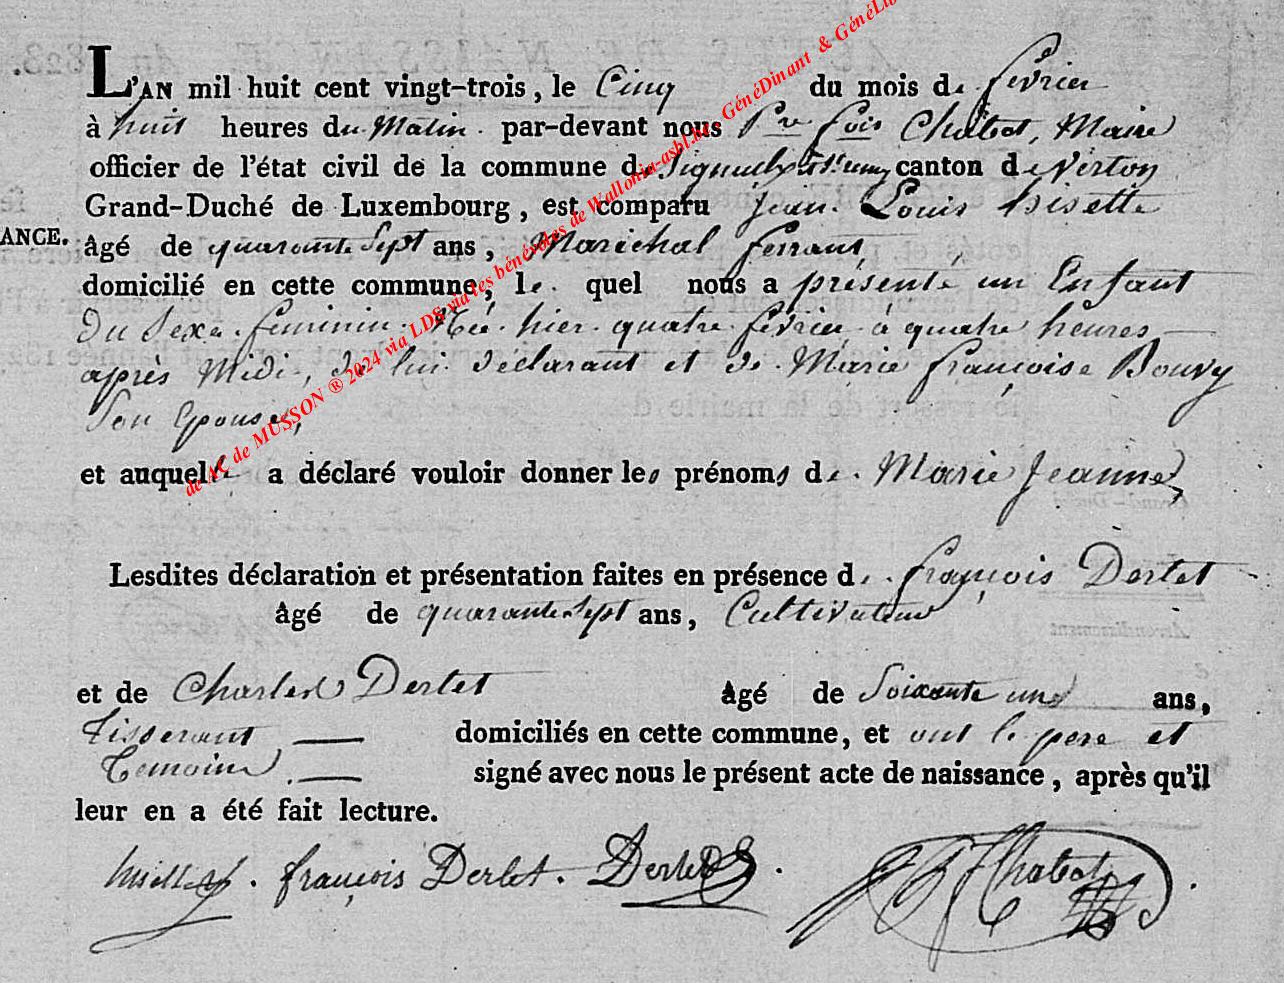 L'AN mil huit cent vingt-trois, le Cinq du mois de fevrier
à huit heures du Matin par-devant nous Pre fois Chabot, Maire
officier de l'état civil de la commune de Signeulx canton de Virton
Grand-Duché de Luxembourg, est comparu Jean Louis
ANCE.
âgé de quarante Sept ans, Maréchal ferrant
domicilié en cette commune, le quel nous a présenté un Enfant
Du Sexe feminin Née hier quatre février à quatre heures
après Midi, de lui déclarant et de Marie françoise Bouvy
Son Epouse,
et auquel a déclaré vouloir donner les prénoms de Marie Jeanne,
Lesdites déclaration et présentation faites en présence de françois Derlet
âgé de quarante Sept ans, Cultivateur
et de Charles Derlet âgé de Soixante un ans,
Tisserant domiciliés en cette commune, et ont le pere et
Temoins signé avec nous le présent acte de naissance, après qu'il
leur en a été fait lecture.
françois Derlet. Derlet Chabot
de AC de MUSSON ® 2024 via LDS via les bénévoles de Wallonia-asbl.be, GénéDinant & GénéLib